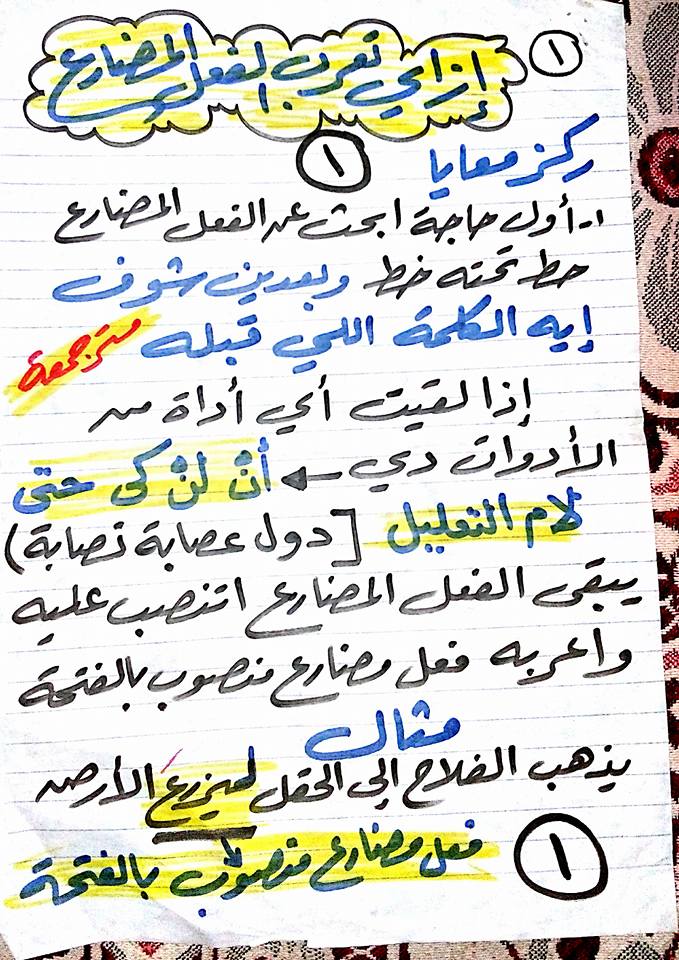 ١
إزاي تعرب الفعل المضارع
١
ركز معايا
١- أول حاجة ابحث عن الفعل المضارع
حط تحته خط وبعدين شوف
إيه الكلمة اللي قبله مترجعة
إذا لقيت أي أداة من
الأدوات دي ← أنْ لنْ كى حتى
لام التعليل [دول عصابة نصابة)
يبقى الفعل المضارع اتنصب عليه
واعربه فعل مضارع منصوب بالفتحة
مثال
يذهب الفلاح إلى الحقل ليزرعَ الأرض
١ فعل مضارع منصوب بالفتحة